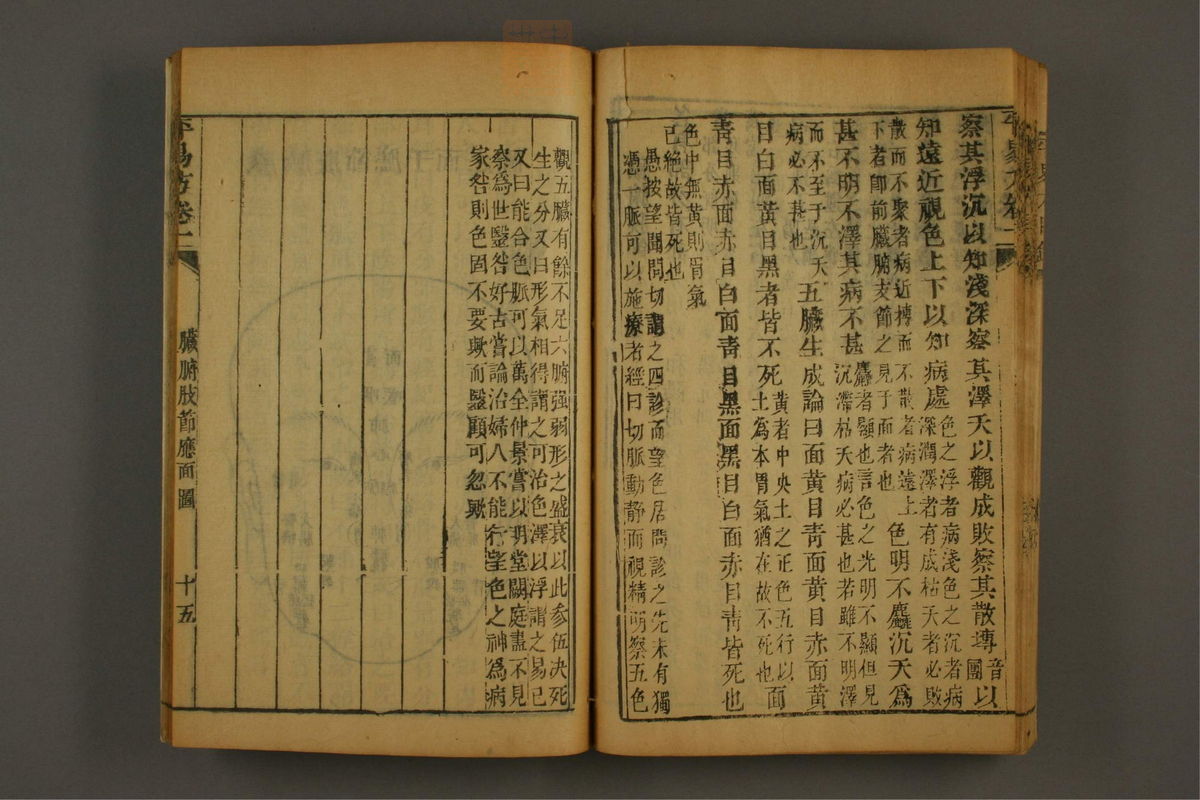 察其浮沉以知淺深察其澤夭以觀成敗察其散摶音團以
知遠近視色上下以知病處色之浮者病淺色之沉者病深潤澤者有成枯夭者必敗
散而不聚者病近摶而不散者病遠上下者卽前臟腑支節之見于面者也色明不麤沉夭爲
甚不明不澤其病不甚麤者顯也言色之光明不顯但見沉滯枯夭病必甚也若雖不明澤
而不至于沉夭病必不甚也五臟生成論曰面黃目靑面黃目赤面黃
目白面黃目黑者皆不死黃者中央土之正色五行以土爲本胃氣猶在故不死也面
靑目赤面赤目白面靑目黑面黑目白面赤目靑皆死也
色中無黃則胃氣已絕故皆死也
愚按望聞問切謂之四診而望色居問診之先未有獨
憑一脈可以施療者經曰切脈動靜而視精明察五色
觀五臟有餘不足六腑強弱形之盛衰以此參伍決死
生之分又曰形氣相得謂之可治色澤以浮謂之易已
又曰能合色脈可以萬全仲景嘗以明堂闕庭盡不見
察爲世毉咎好古嘗論治婦人不能行望色之神爲病
家咎則色固不要歟而毉顧可忽歟
易方卷二
臟腑肢節應面圖
十五